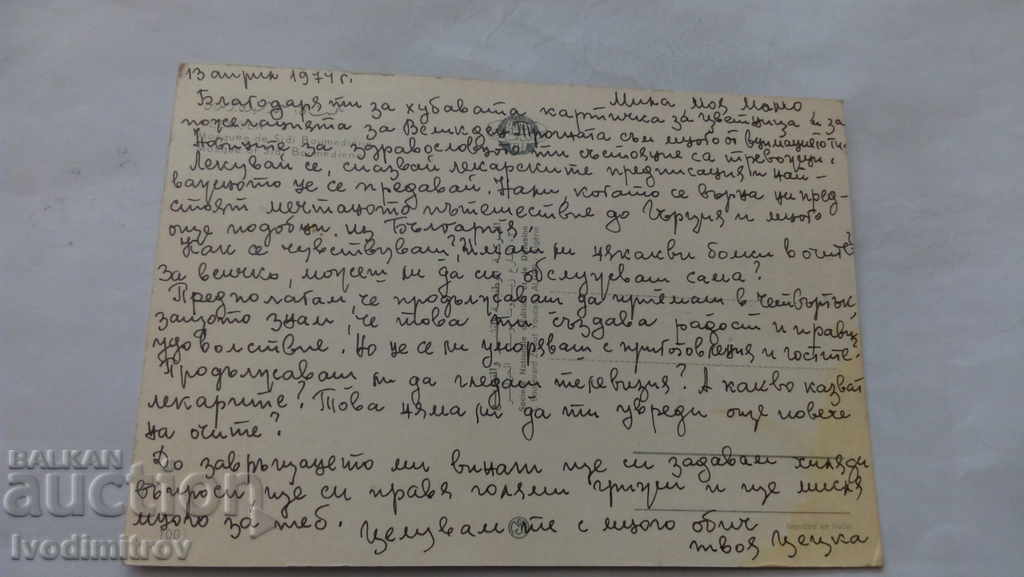 13 април 1974 г.
Мила моя мамо
Благодаря ти за хубавата картичка за цветница и за
пожеланията за Великден. Трогната съм много от вниманието ти.
Новините за здравословното ти състояние са тревожни.
Лекувай се, спазвай лекарските предписания и най-
важното не се предавай. Нали, когато се върна ни пред-
стоят мечтаното пътешествие до Гърция и много
още подобни из България.
Как се чувствуваш? Имаш ли някакви болки в очите?
За всичко, можеш ли да си обслужваш сама?
Предполагам, че продължаваш да приемаш в четвъртък
защото знам, че това ти създава радост и прави
удоволствие. Но не се ли уморяваш с приготовления и гостите.
Продължаваш ли да гледаш телевизия? А какво казват
лекарите? Това няма ли да ти увреди още повече
на очите?
До завръщането ми винаги ще си задавам хиляди
въпроси, ще си правя големи грижи и ще мисля
много за теб.
Целувам те с много обич
твоя Цецка
Mosquée de Sidi Boumediene
100
BALKAN
auction
Ivodimitrov